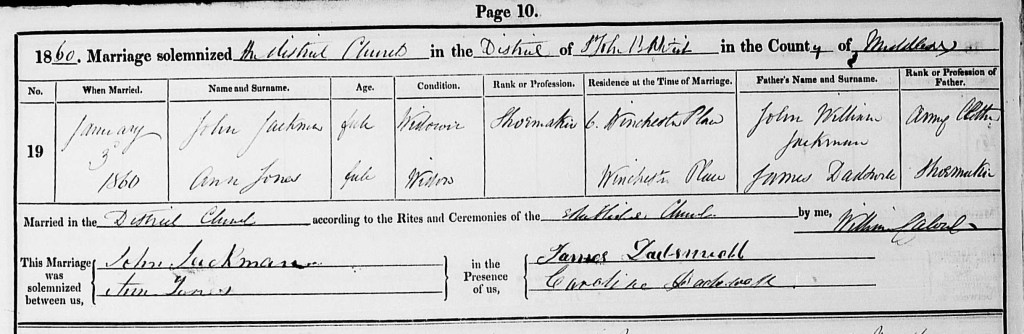 Page 10.
1860. Marriage solemnized the District Church in the District of St John in the County of Middlesex
No. When Married. Name and Surname. Age. Condition. Rank or Profession. Residence at the Time of Marriage. Father's Name and Surname. Rank or Profession of Father.
January John Jackman full Widower Shoemaker 6. Winchester Place John William Army
19 3d Jackman
1860 Ann Jones full Widow Winchester Place James Shoemaker
Married in the District Church according to the Rites and Ceremonies of the Established Church by me, William
This Marriage was solemnized between us, John Jackman in the Presence of us, James
Ann Jones Caroline